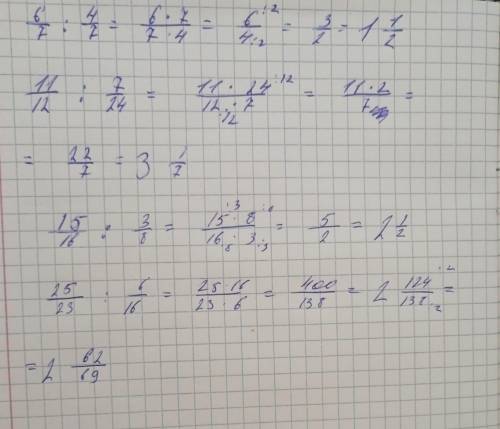 6/7 : 4/7 = 6·7/7·4 = 6:2/4:2 = 3/2 = 1 1/2
11/12 : 7/24 = 11·24:12/12:12·7 = 11·2/7 =
= 22/7 = 3 1/7
15/16 : 3/8 = 15:3·8:8/16:8·3:3 = 5/2 = 2 1/2
25/23 : 6/16 = 25·16/23·6 = 400/138 = 2 124:2/138:2 =
= 2 62/69